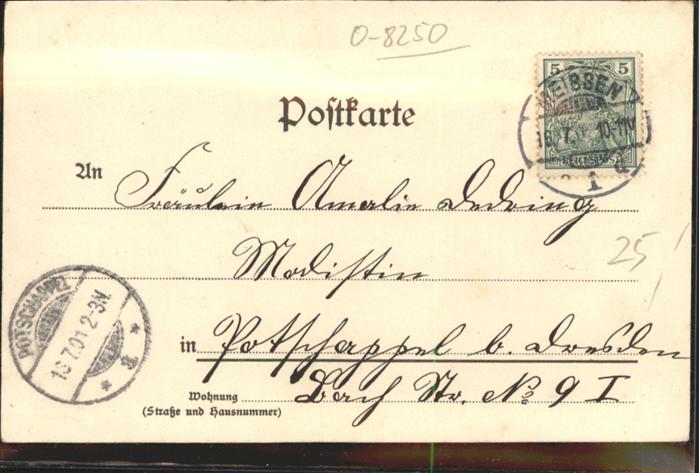 O-8250
5 5
MEISSEN
16.7.01. 10-11V.
1 d
Postkarte
An Fräulein Amalie Dedring
Modistin
25,-
POTSCHAPPEL
16.7.01.2-3N.
in Potschappel b. Dresden
Wohnung Bach Str. No 9 I
(Straße und Hausnummer)